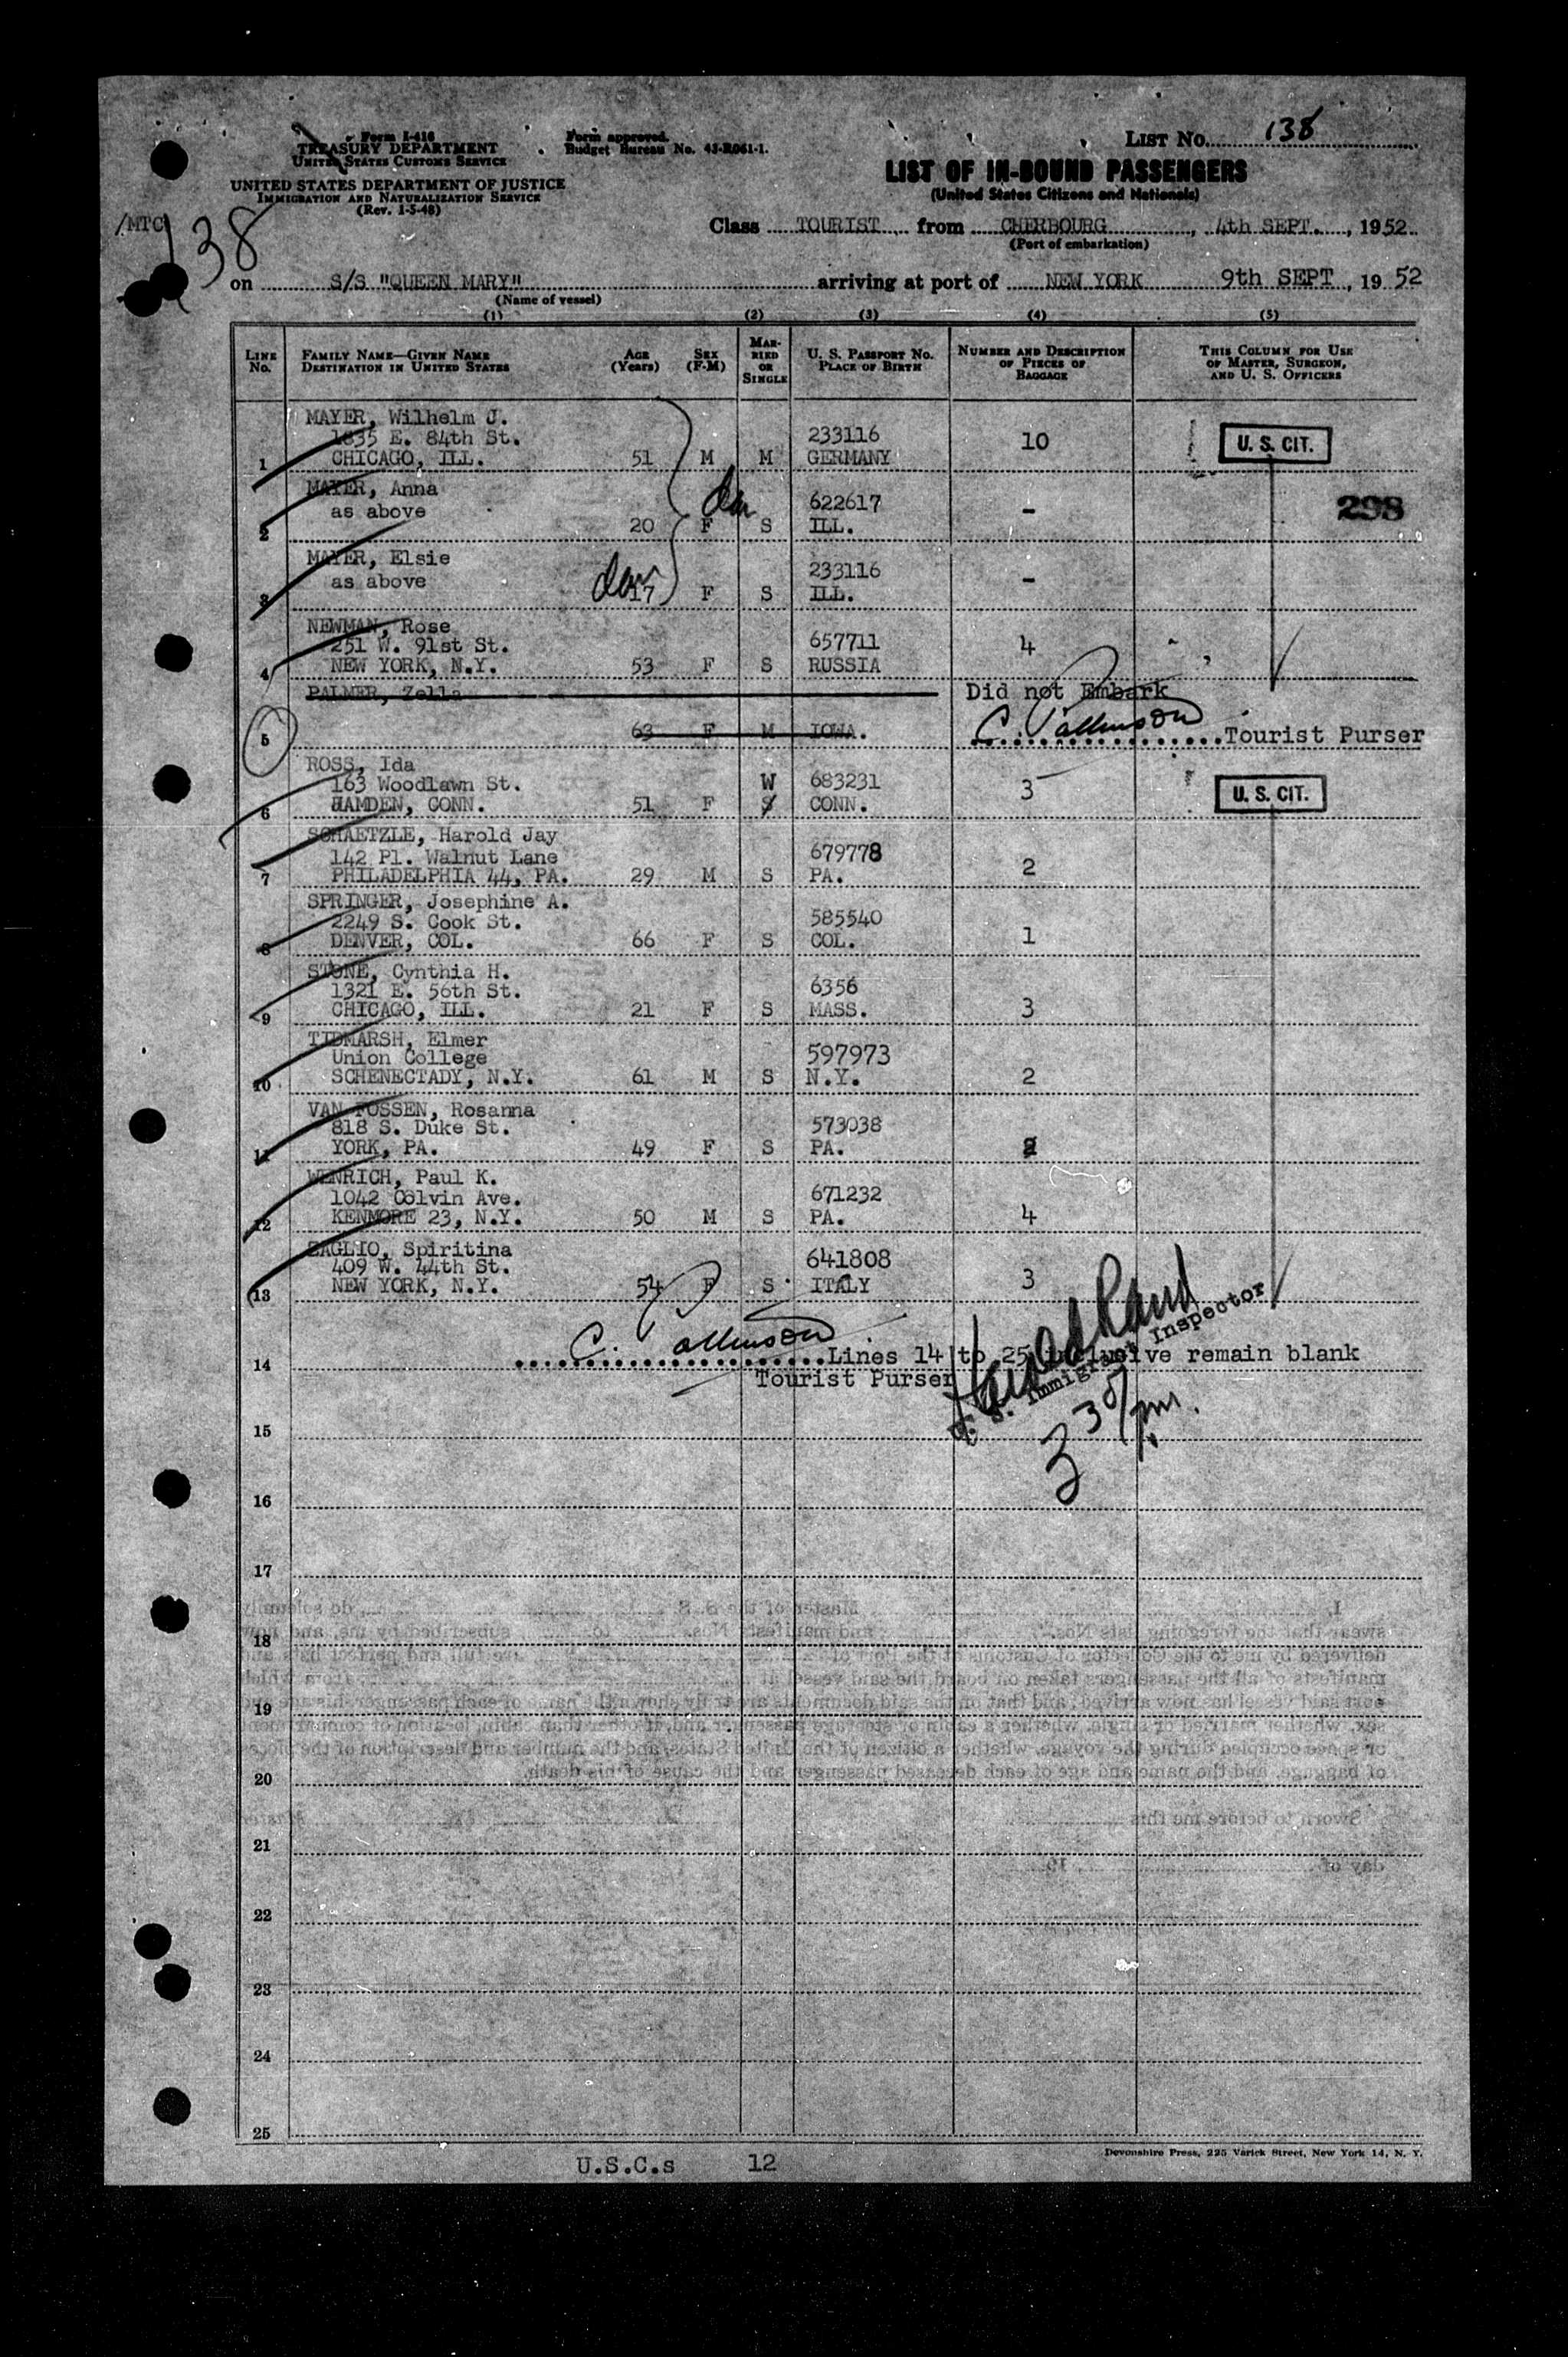 Form I-418
TREASURY DEPARTMENT
UNITED STATES CUSTOMS SERVICE
UNITED STATES DEPARTMENT OF JUSTICE
IMMIGRATION AND NATURALIZATION SERVICE
(Rev. 1-5-48)
Form approved.
Budget Bureau No. 43-R061-1.
LIST No. 138
LIST OF IN-BOUND PASSENGERS
(United States Citizens and Nationals)
/MTC
138
Class TOURIST from CHERBOURG, 4th SEPT., 1952
(Port of embarkation)
on S/S "QUEEN MARY" arriving at port of NEW YORK 9th SEPT, 1952
(Name of vessel)
(1) (2) (3) (4) (5)
LINE No. FAMILY NAME—GIVEN NAME DESTINATION IN UNITED STATES AGE (Years) SEX (F-M) MARRIED OR SINGLE U. S. PASSPORT NO. PLACE OF BIRTH NUMBER AND DESCRIPTION OF PIECES OF BAGGAGE THIS COLUMN FOR USE OF MASTER, SURGEON, AND U. S. OFFICERS
MAYER, Wilhelm J.
1835 E. 84th St. 233116 10 U. S. CIT.
1 CHICAGO, ILL. 51 M M GERMANY
MAYER, Anna
as above 622617 - 298
2 20 F S ILL.
MAYER, Elsie
as above 233116 -
3 dau 17 F S ILL.
NEWMAN, Rose
251 W. 91st St. 657711 4
4 NEW YORK, N.Y. 53 F S RUSSIA
PALMER, Zella Did not Embark
5 63 F M IOWA. Tourist Purser
ROSS, Ida
163 Woodlawn St. W 683231 3 U. S. CIT.
6 HAMDEN, CONN. 51 F S CONN.
SCHAETZLE, Harold Jay
142 Pl. Walnut Lane 679778 2
7 PHILADELPHIA 44, PA. 29 M S PA.
SPRINGER, Josephine A.
2249 S. Cook St. 585540 1
8 DENVER, COL. 66 F S COL.
STONE, Cynthia H.
1321 E. 56th St. 6356
9 CHICAGO, ILL. 21 F S MASS. 3
TIDMARSH, Elmer
Union College 597973
10 SCHENECTADY, N.Y. 61 M S N.Y. 2
VAN FOSSEN, Rosanna
818 S. Duke St. 573038
11 YORK, PA. 49 F S PA. 2
WENRICH, Paul K.
1042 Colvin Ave. 671232
12 KENMORE 23, N.Y. 50 M S PA. 4
ZAGLIO, Spiritina
409 W. 44th St. 641808
13 NEW YORK, N.Y. 54 F S ITALY 3
14 Lines 14 to 25 inclusive remain blank
Tourist Purser
U. S. Immigrant Inspector
3 30 pm.
15
16
17
18
19
20
21
22
23
24
25
U.S.C.s 12
Devonshire Press, 225 Varick Street, New York 14, N. Y.